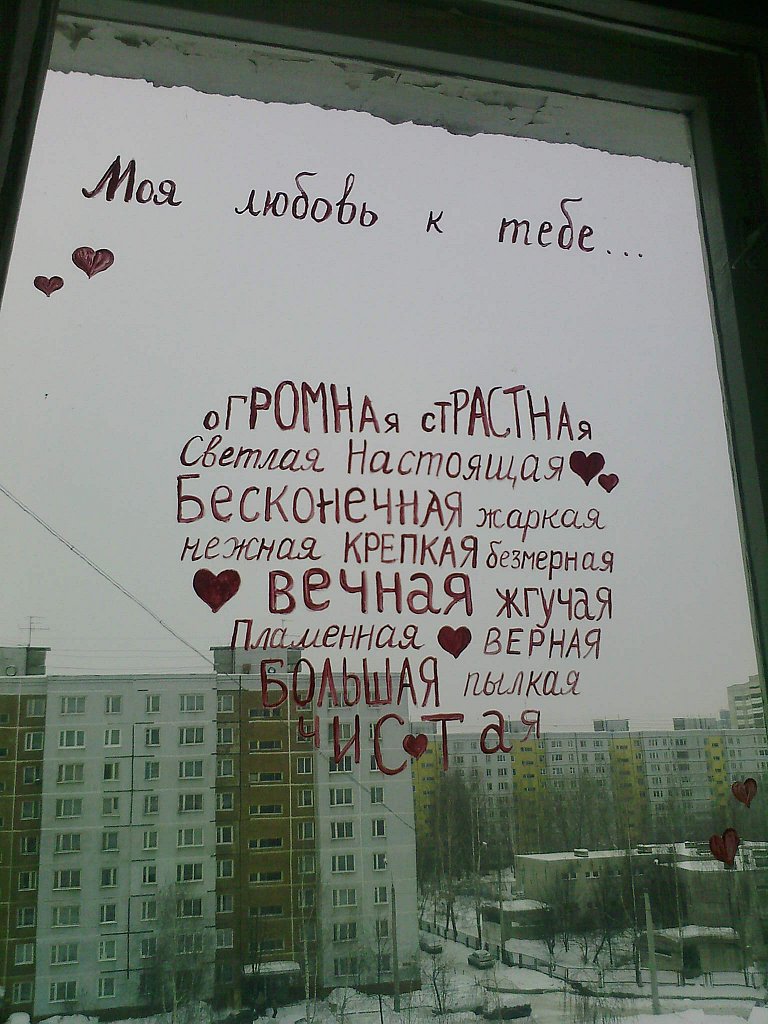 Моя любовь к тебе...
оГРОМНАя стРАСТНАя
Светлая Настоящая
Бесконечная жаркая
нежная КРЕПКАЯ безмерная
вечная жгучая
Пламенная ВЕРНАЯ
БОЛЬШАЯ пылкая
чистая